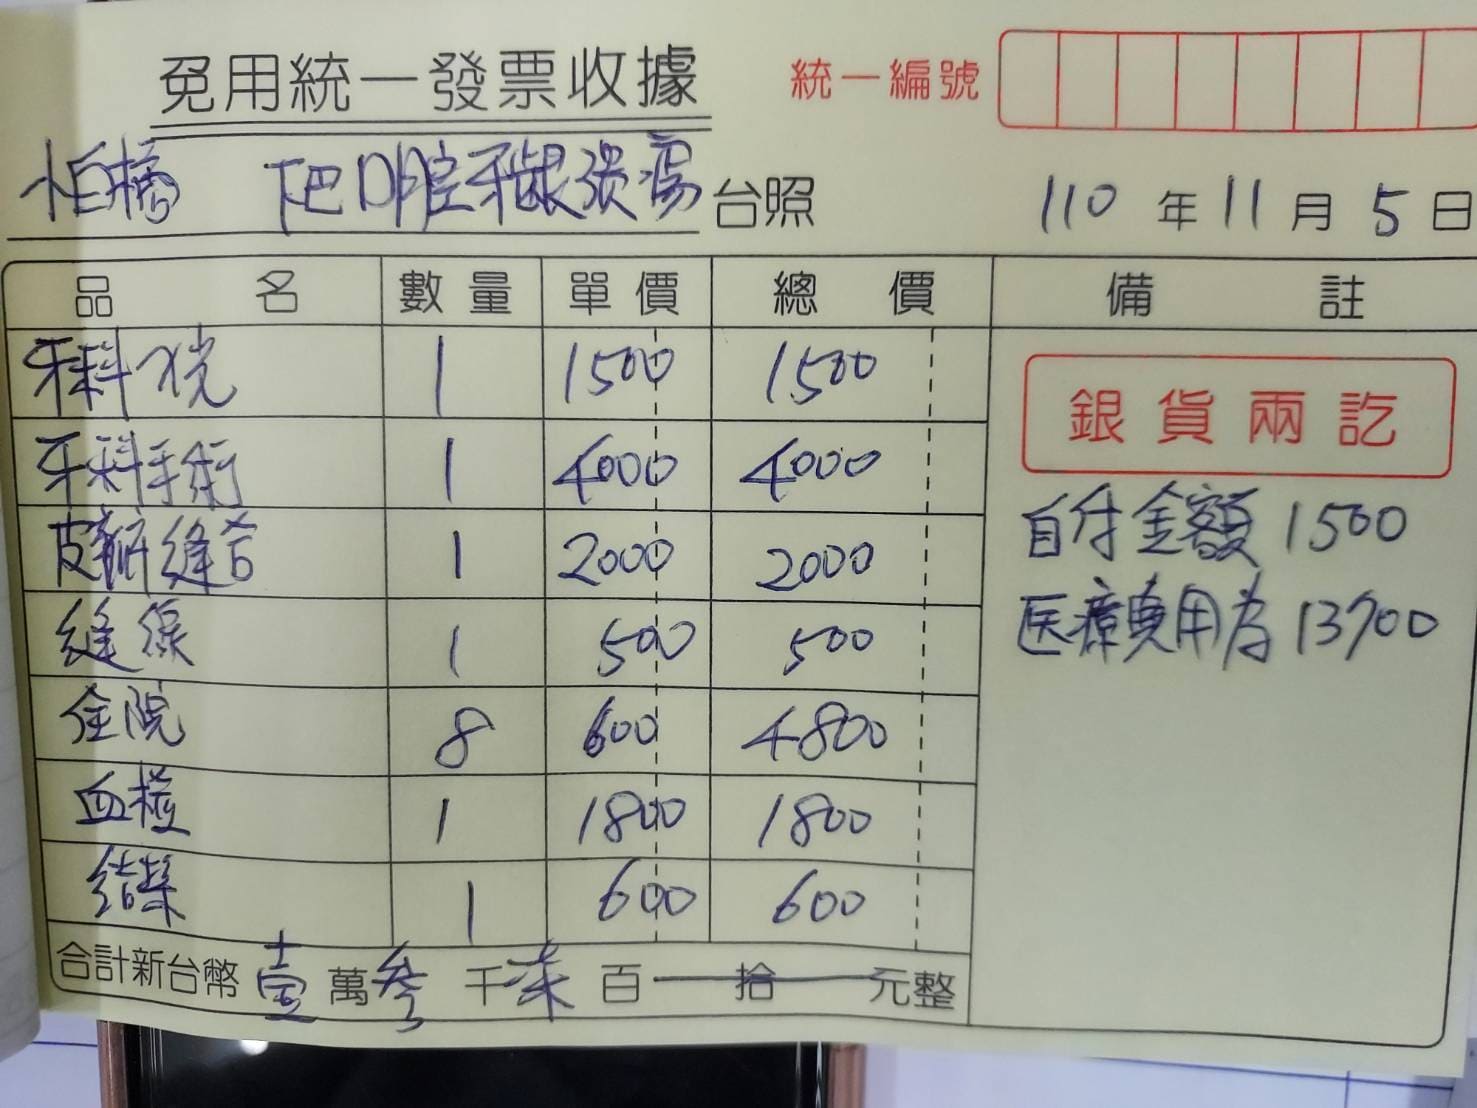 免用統一發票收據 統一編號
怕橘 下巴口腔牙齦潰瘍 台照 110 年 11 月 5 日
品名 數量 單價 總價 備註
牙科 1 1500 1500
銀貨兩訖
牙科手術 1 4000 4000
自付金額 1500
皮瓣縫合 1 2000 2000
医療費用為 13700
縫線 1 500 500
住院 8 600 4800
血檢 1 1800 1800
1 600 600
合計新台幣 壹 萬 參 千 柒 百 拾 元整